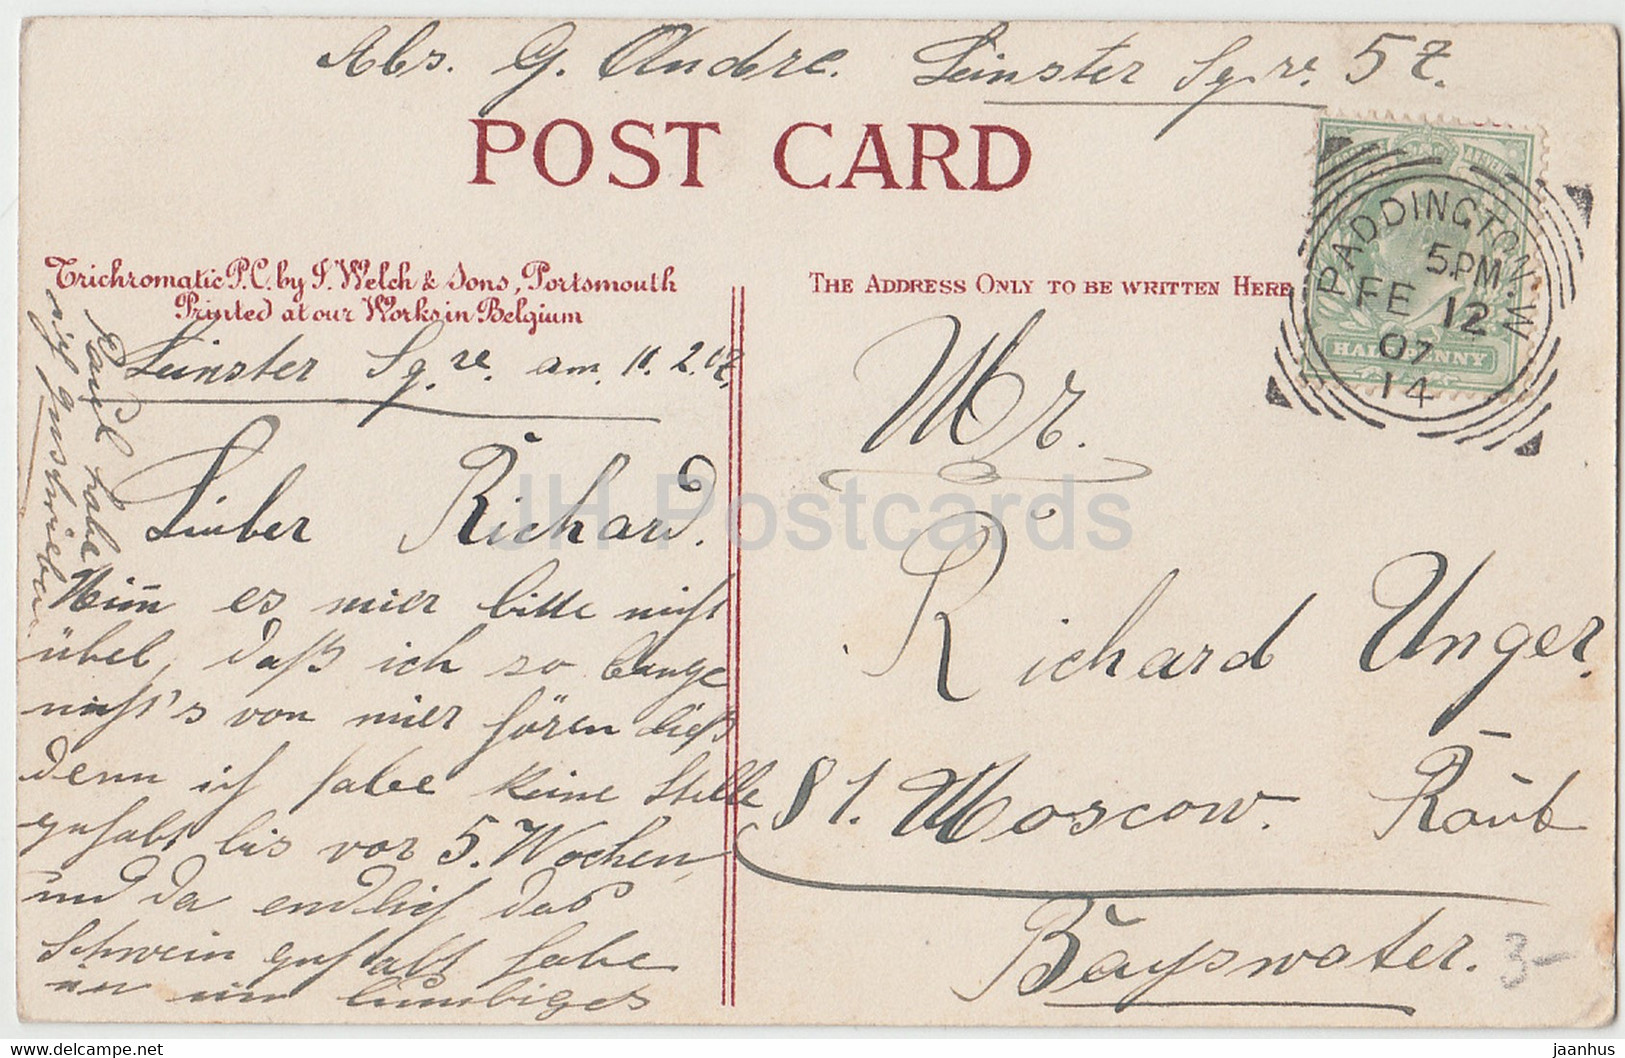 Abs. G. Andre. Leinster Sq.re. 57.
POST CARD
Trichromatic P.C. by J. Welch & Sons, Portsmouth
Printed at our Works in Belgium
THE ADDRESS ONLY TO BE WRITTEN HERE
PADDINGTON. W
5.PM
FE 12
07
14
HALFPENNY
Leinster Sq.re. am. 11. 2. 07.
Lieber Richard.
Nim̄ es mier bitte nicht
übel, daß ich so lange
nicht's von mier hören ließ
denn ich habe keine Stelle
gehabt bis vor 5. Wochen,
und da endlich das
Schwein gehabt habe
in ein
habe
Mr.
Richard Unger.
81. Moscow. Road
Bayswater.
3-
JH Postcards
delcampe.net
jaanhus